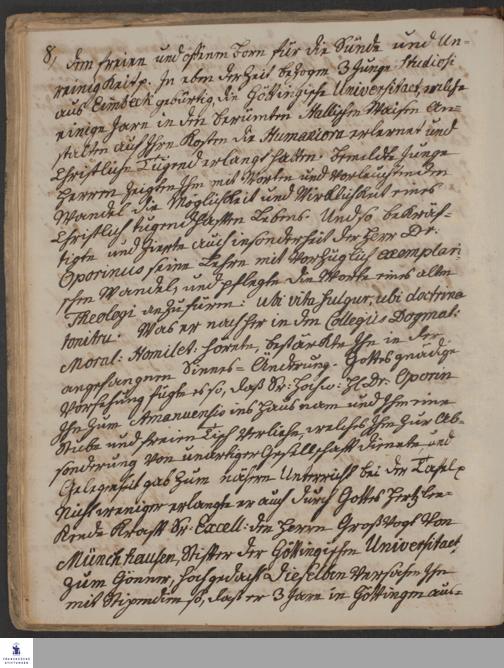 8, dem freien und offenem born für die Sünde und Un-
reinigkeit p. In eben der Zeit bezogen 3 junge Studiosi
aus Eimbeck gebürtig, die Göttingische Universitaet, welche
einige Jare in den berümten Hallischen Waisen An-
stalten auf Ihre Kosten die Humaniora erlernet und
Christliche Tugend erlangt hatten. bemeldte junge
Herren zeigten Ihm mit Worten und vorleuchtenden
Wandel die Möglichkeit und Wirklichkeit eines
Christlich tugendhafften Lebens. Und so bekräf-
tigte und zierte auch insonderheit der Herr Dr.
Oporinus seine Lehre mit vorzüglich exemplari-
schen Wandel, und pflegte die Worte eines alten
Theologi anzufüren: ubi vita fulgur, ubi doctrina
tonitru. Was er nachher in den Collegiis Dogmat:
Moral: Homilet: hörete, bestärkte Ihn in der
angefangnen Sinnes-Änderung. Gottes gnädige
Vorsehung fügte es so, daß Sr: Hochw: Hr Dr: Oporin
Ihn zum Amanuensis ins Haus nam und Ihm eine
Stube und freien Tisch verliehe, welches Ihm zur Ab-
sonderung von unartiger Gesellschafft dienete und
Gelegenheit gab zum nähern Unterricht bei der Tafel p
Nicht weniger erlangte er auch durch Gottes Hertzlen-
kende Krafft Sr: Excell: den Herrn Groß Vogt von
Münchhausen, Stiffter der Göttingischen Universitaet,
zum Gönner, hochgedacht Dieselben versahen Ihn
mit Stipendien so, daß er 3 Jare in Göttingen aus-
FRANCKESCHE
STIFTUNGEN